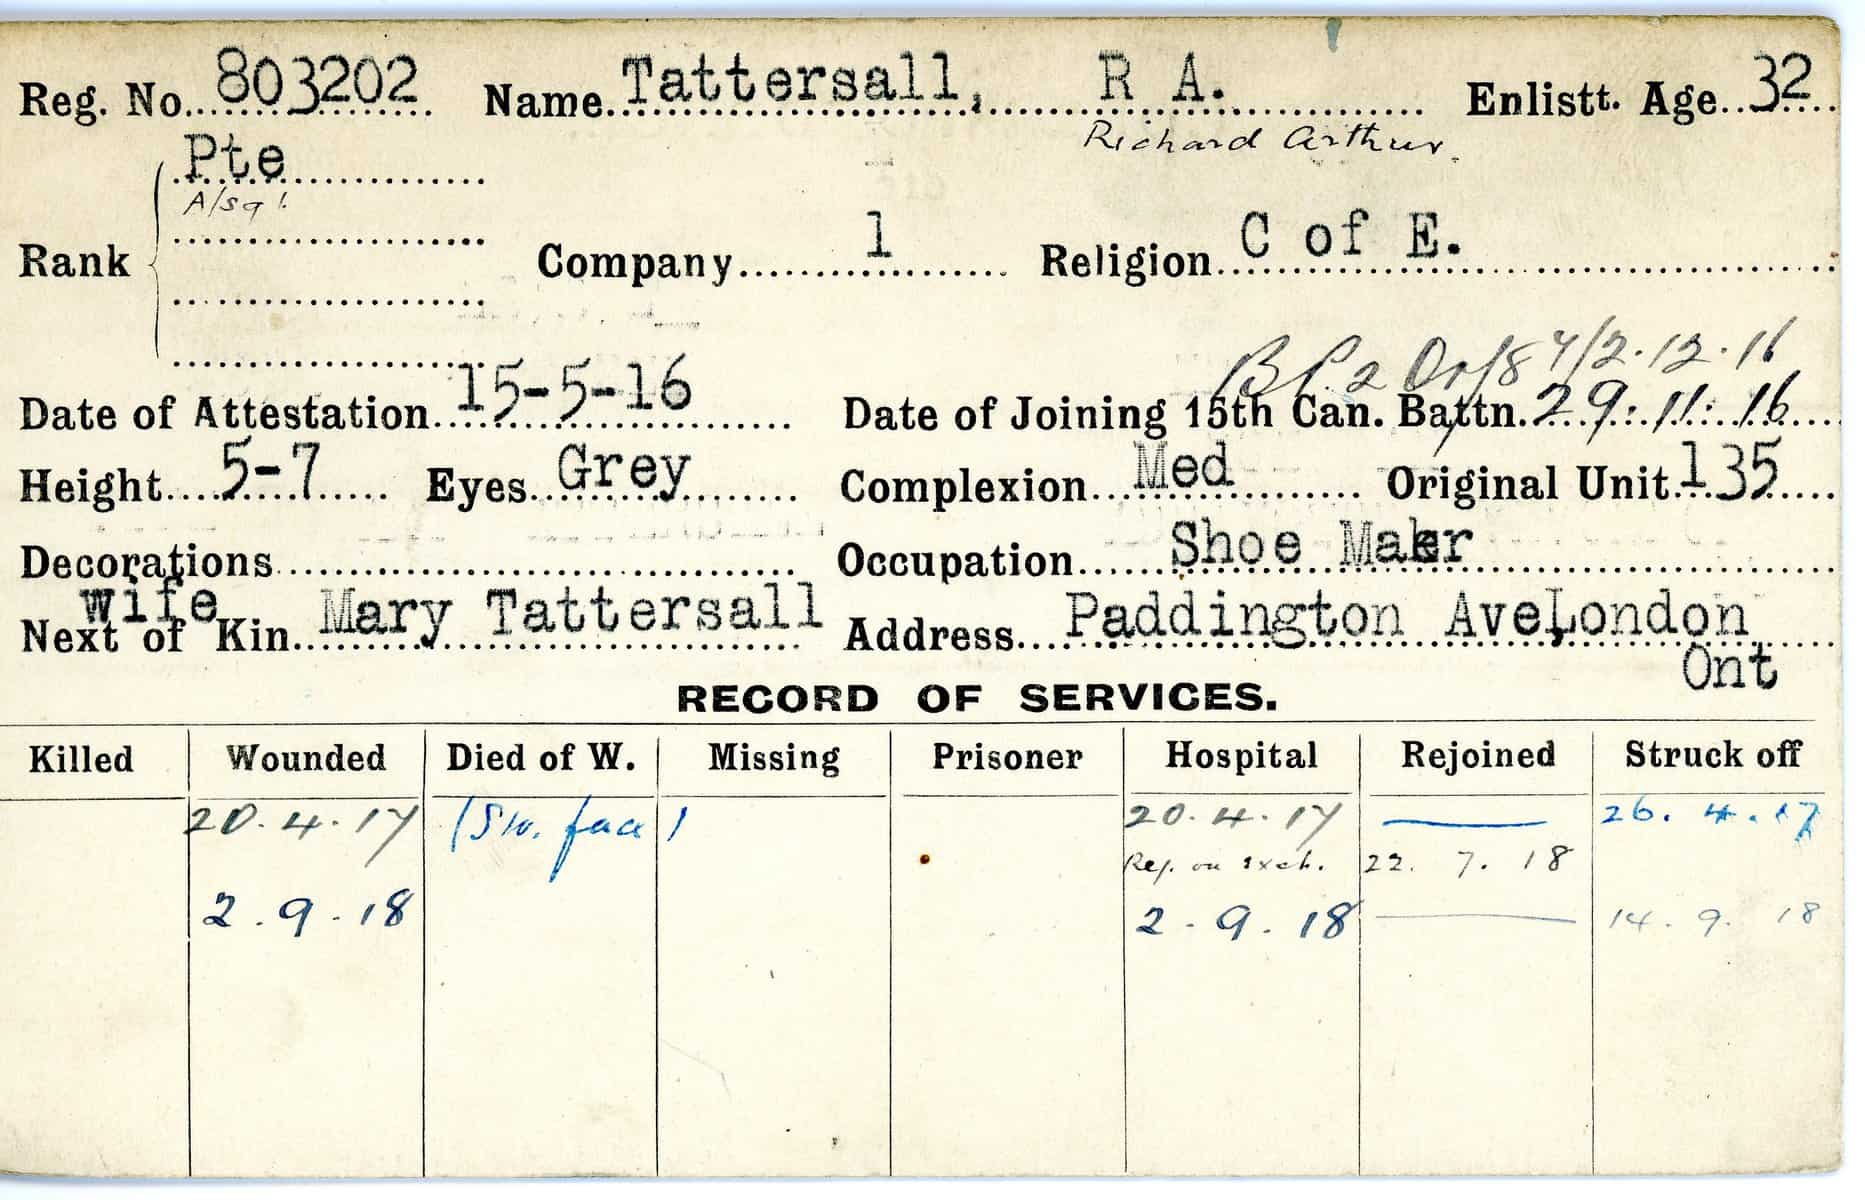 Reg. No. 803202 Name Tattersall, R A. Enlistt. Age 32
Richard Arthur.
Pte
A/Sgt.
Rank Company 1 Religion C of E.
2.12.16
Date of Attestation 15-5-16 Date of Joining 15th Can. Battn. 29.11.16
Height 5-7 Eyes Grey Complexion Med Original Unit 135
Decorations Occupation Shoe Maker
Wife
Next of Kin Mary Tattersall Address Paddington Ave, London
Ont
RECORD OF SERVICES.
Killed Wounded Died of W. Missing Prisoner Hospital Rejoined Struck off
20.4.17 (Sw. face) 20.4.17 — 26.4.17
Rep. on Exch. 22. 7. 18
2.9.18 2.9.18 — 14.9.18